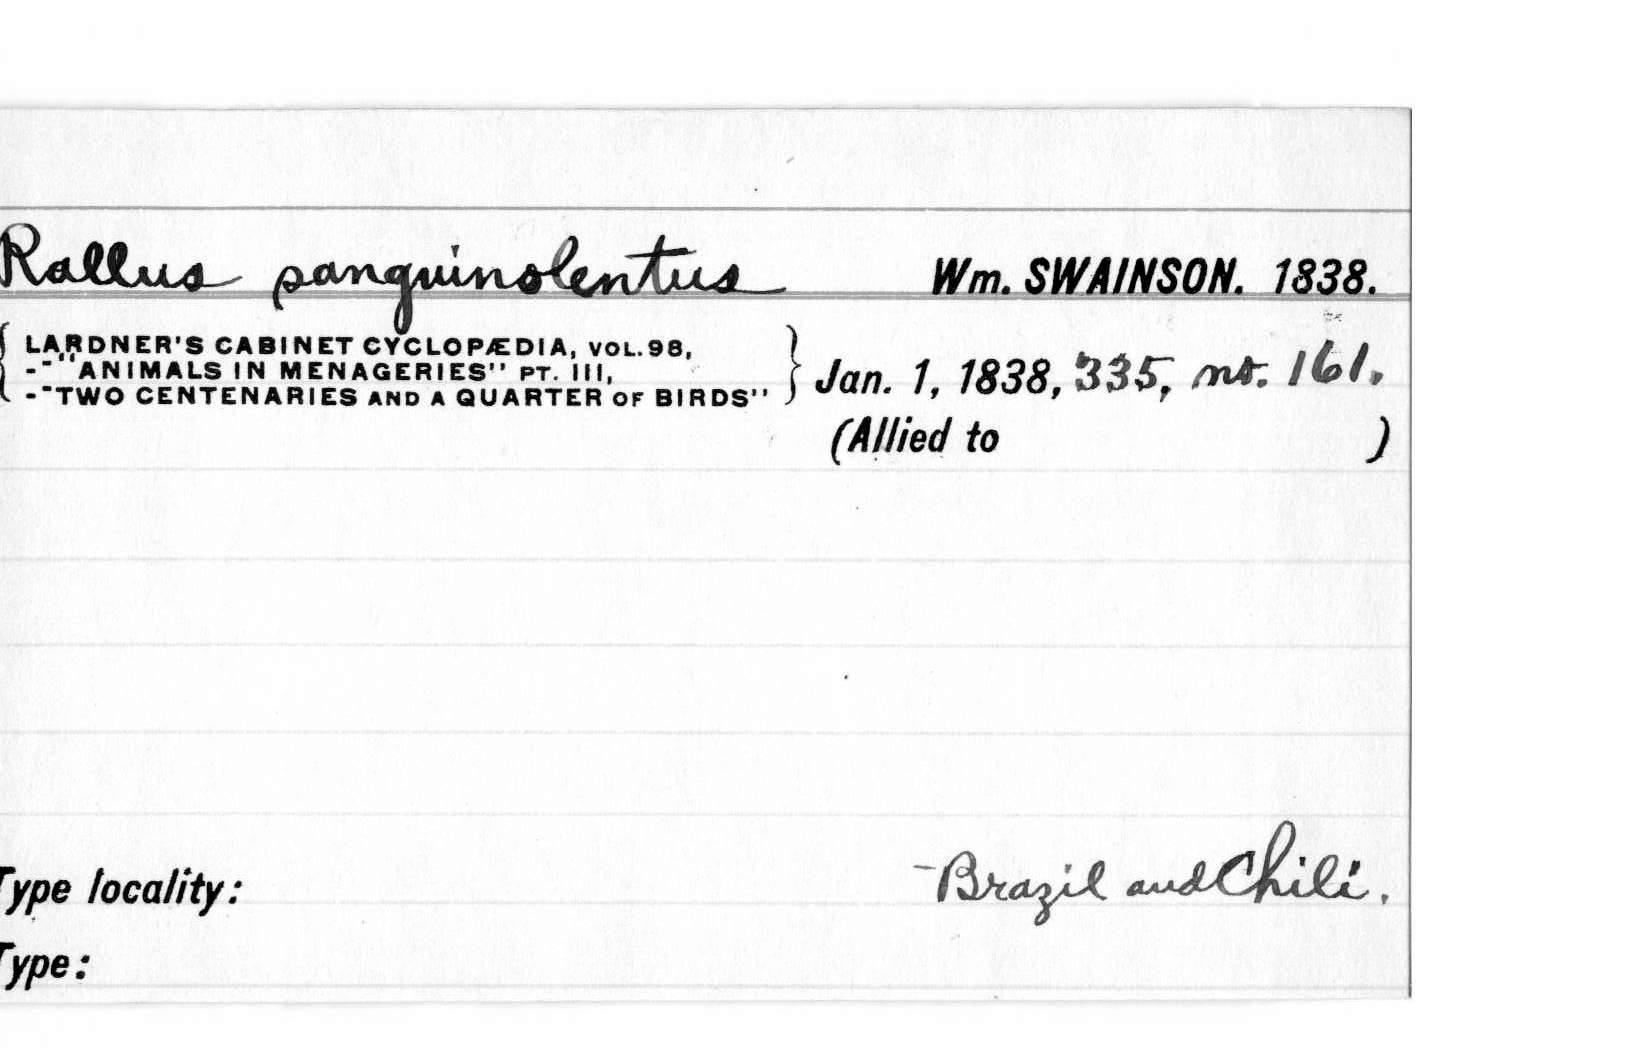 Rallus sanguinolentus Wm. SWAINSON. 1838.
{ LARDNER'S CABINET CYCLOPÆDIA, VOL. 98, }
--"ANIMALS IN MENAGERIES" PT. III,
--"TWO CENTENARIES AND A QUARTER OF BIRDS"
Jan. 1, 1838, 335, no. 161.
(Allied to )
Type locality: Brazil and Chili.
Type: